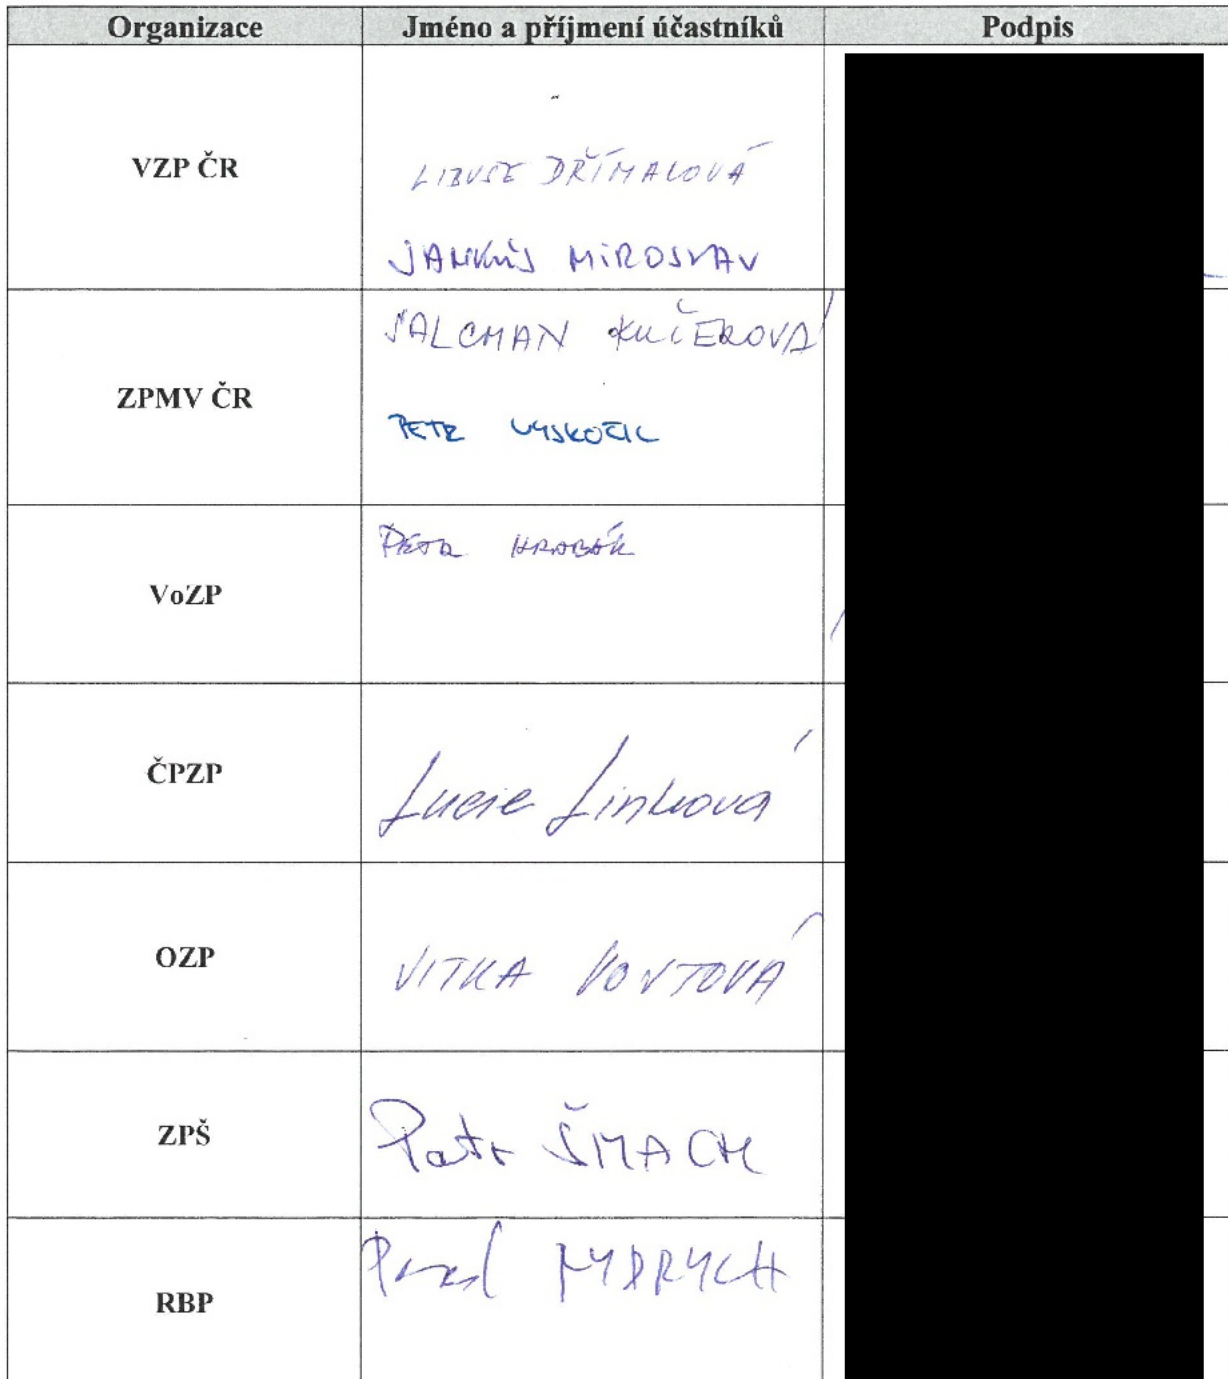 Organizace Jméno a příjmení účastníků Podpis
VZP ČR
LIBUSE DŘÍMALOVÁ
JANKŮJ MIROSLAV
ZPMV ČR
SALCMAN KUČEROVÁ
PETR VYSKOČIL
VoZP
PETR HRABÁK
ČPZP
Lucie Linková
OZP
VITKA
ZPŠ
Petr ŠMACH
RBP
Pavel NYDRYCH